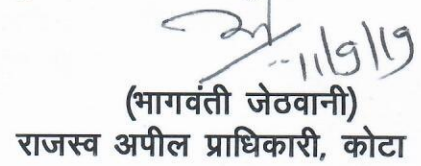 11/9/19
(भागवंती जेठवानी)
राजस्व अपील प्राधिकारी, कोटा